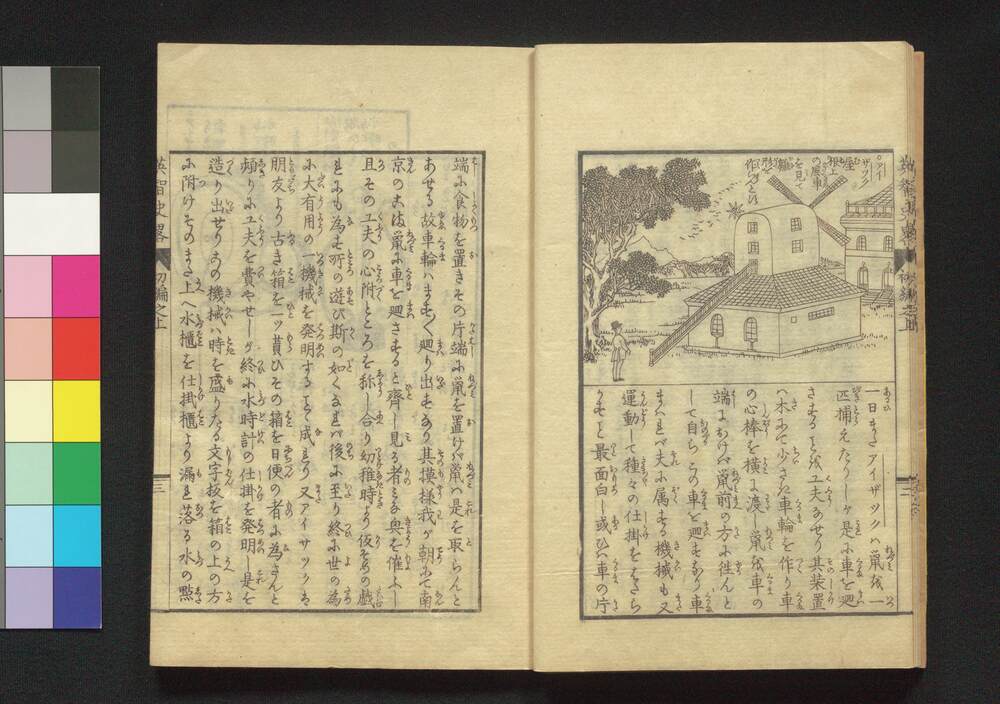 ○アイ
ザツク
屋
根上
の風車
を見て
雛
形を
作るとひ
一日またアイザツクハ鼠を一
匹捕えたりしケ是に車を廻
さする事を工夫なせり其装置
ハ木にて少さき車輪を作り車
の心棒を横に渡し鼠を車の
端におけバ鼠前の方に徃んと
して自ら此車を廻すなり車
まハれバ夫に属する機械も又
運動して種々の仕掛をはたら
かすこと最面白し或ひハ車の片
端に食物を置きその片端に鼠を置けバ鼠ハ是を取らんと
あせる故車輪ハます〳〵廻り出すなり其摸様我が朝にて南
京のこま鼠に車を廻さすると齊し見る者みな興を催ふし
且その工夫の心附ところを称し合り幼稚時より仮そめの戯
れにも為す所の遊び斯の如くなれバ後に至り終に世の為
に大有用の一機械を発明する事と成れり又アイサツクは
朋友より古き箱を一ッ貰ひその箱を日便の者に為さんと
頻りに工夫を費やせしが終に水時計の仕掛を発明し是を
造り出せり此の機械ハ時を盛りたる文字板を箱の上の方
に附けそのまた上へ水櫃を仕掛櫃より漏れ落る水の點
英智史略
初編之上
三